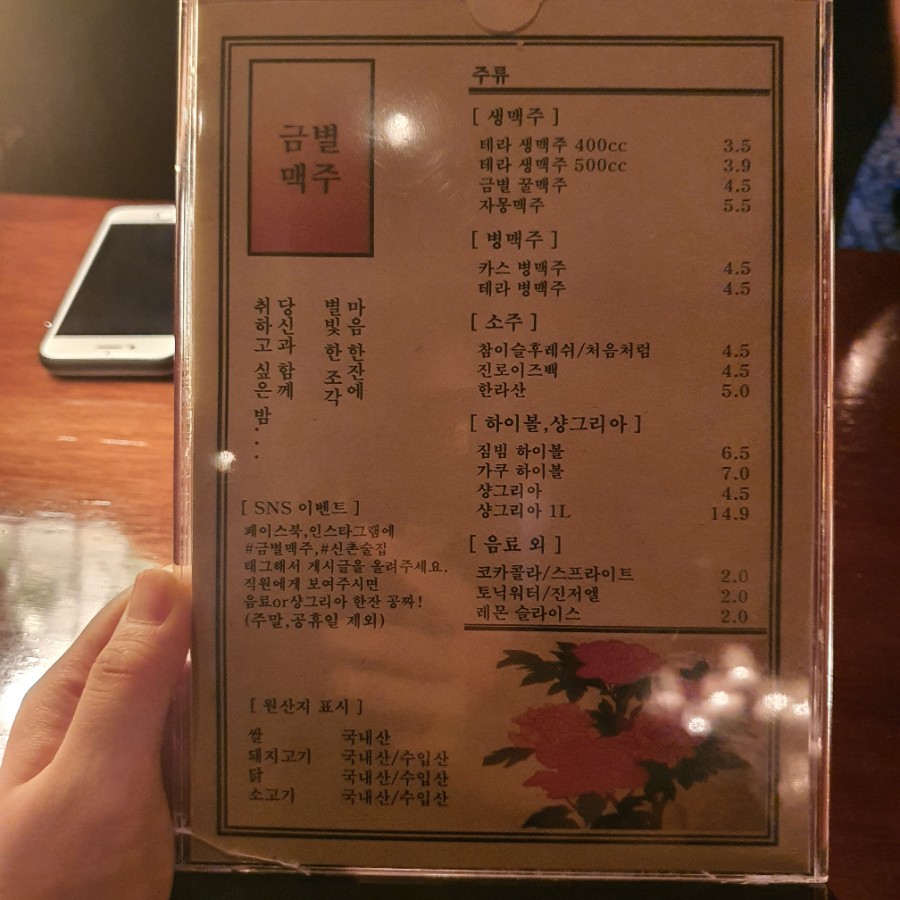 금별
맥주
마음 한 잔에
별빛 한 조각
당신과 함께
취하고 싶은 밤...
[ SNS 이벤트 ]
페이스북,인스타그램에
#금별맥주,#신촌술집
태그해서 게시글을 올려주세요.
직원에게 보여주시면
음료or샹그리아 한잔 공짜!
(주말,공휴일 제외)
[ 원산지 표시 ]
쌀 국내산
돼지고기 국내산/수입산
닭 국내산/수입산
소고기 국내산/수입산
주류
[ 생맥주 ]
테라 생맥주 400cc 3.5
테라 생맥주 500cc 3.9
금별 꿀맥주 4.5
자몽맥주 5.5
[ 병맥주 ]
카스 병맥주 4.5
테라 병맥주 4.5
[ 소주 ]
참이슬후레쉬/처음처럼 4.5
진로이즈백 4.5
한라산 5.0
[ 하이볼,샹그리아 ]
짐빔 하이볼 6.5
가쿠 하이볼 7.0
샹그리아 4.5
샹그리아 1L 14.9
[ 음료 외 ]
코카콜라/스프라이트 2.0
토닉워터/진저엘 2.0
레몬 슬라이스 2.0